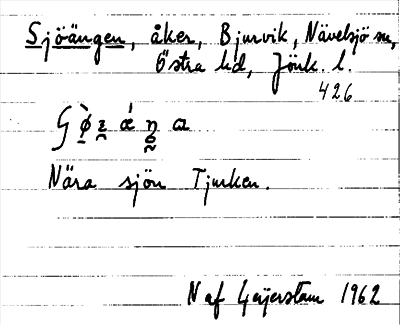 Sjöängen, åker, Bjurvik, Nävelsjö sn,
Östra hd, Jönk. l.
426
Nära sjön Tjurken.
N af Geijerstam 1962